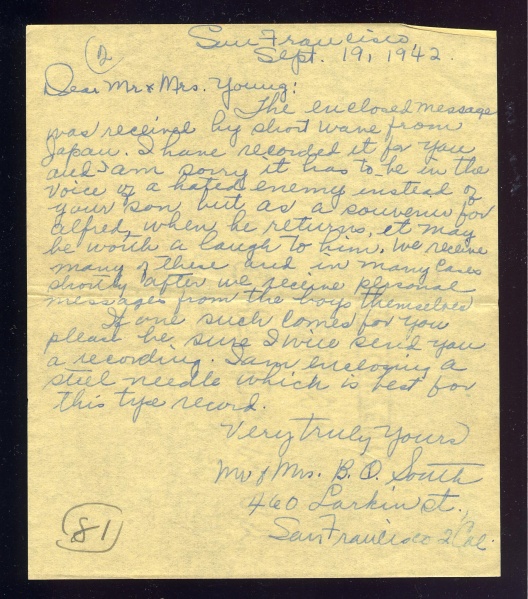 2
San Francisco,
Sept. 19, 1942.
Dear Mr & Mrs. Young:
The enclosed message
was received by short wave from
Japan. I have recorded it for you
and am sorry it has to be in the
voice of a hated enemy instead of
your son but as a souvenir for
Alfred, when he returns, it may
be worth a laugh to him. We receive
many of these and in many cases
shortly after we receive personal
messages from the boys themselves
If one such comes for you
please be sure I will send you
a recording. I am enclosing a
steel needle which is best for
this type record.
Very truly yours
Mr & Mrs. B. O. South
460 Larkin st.,
San Francisco 2 Cal.
81